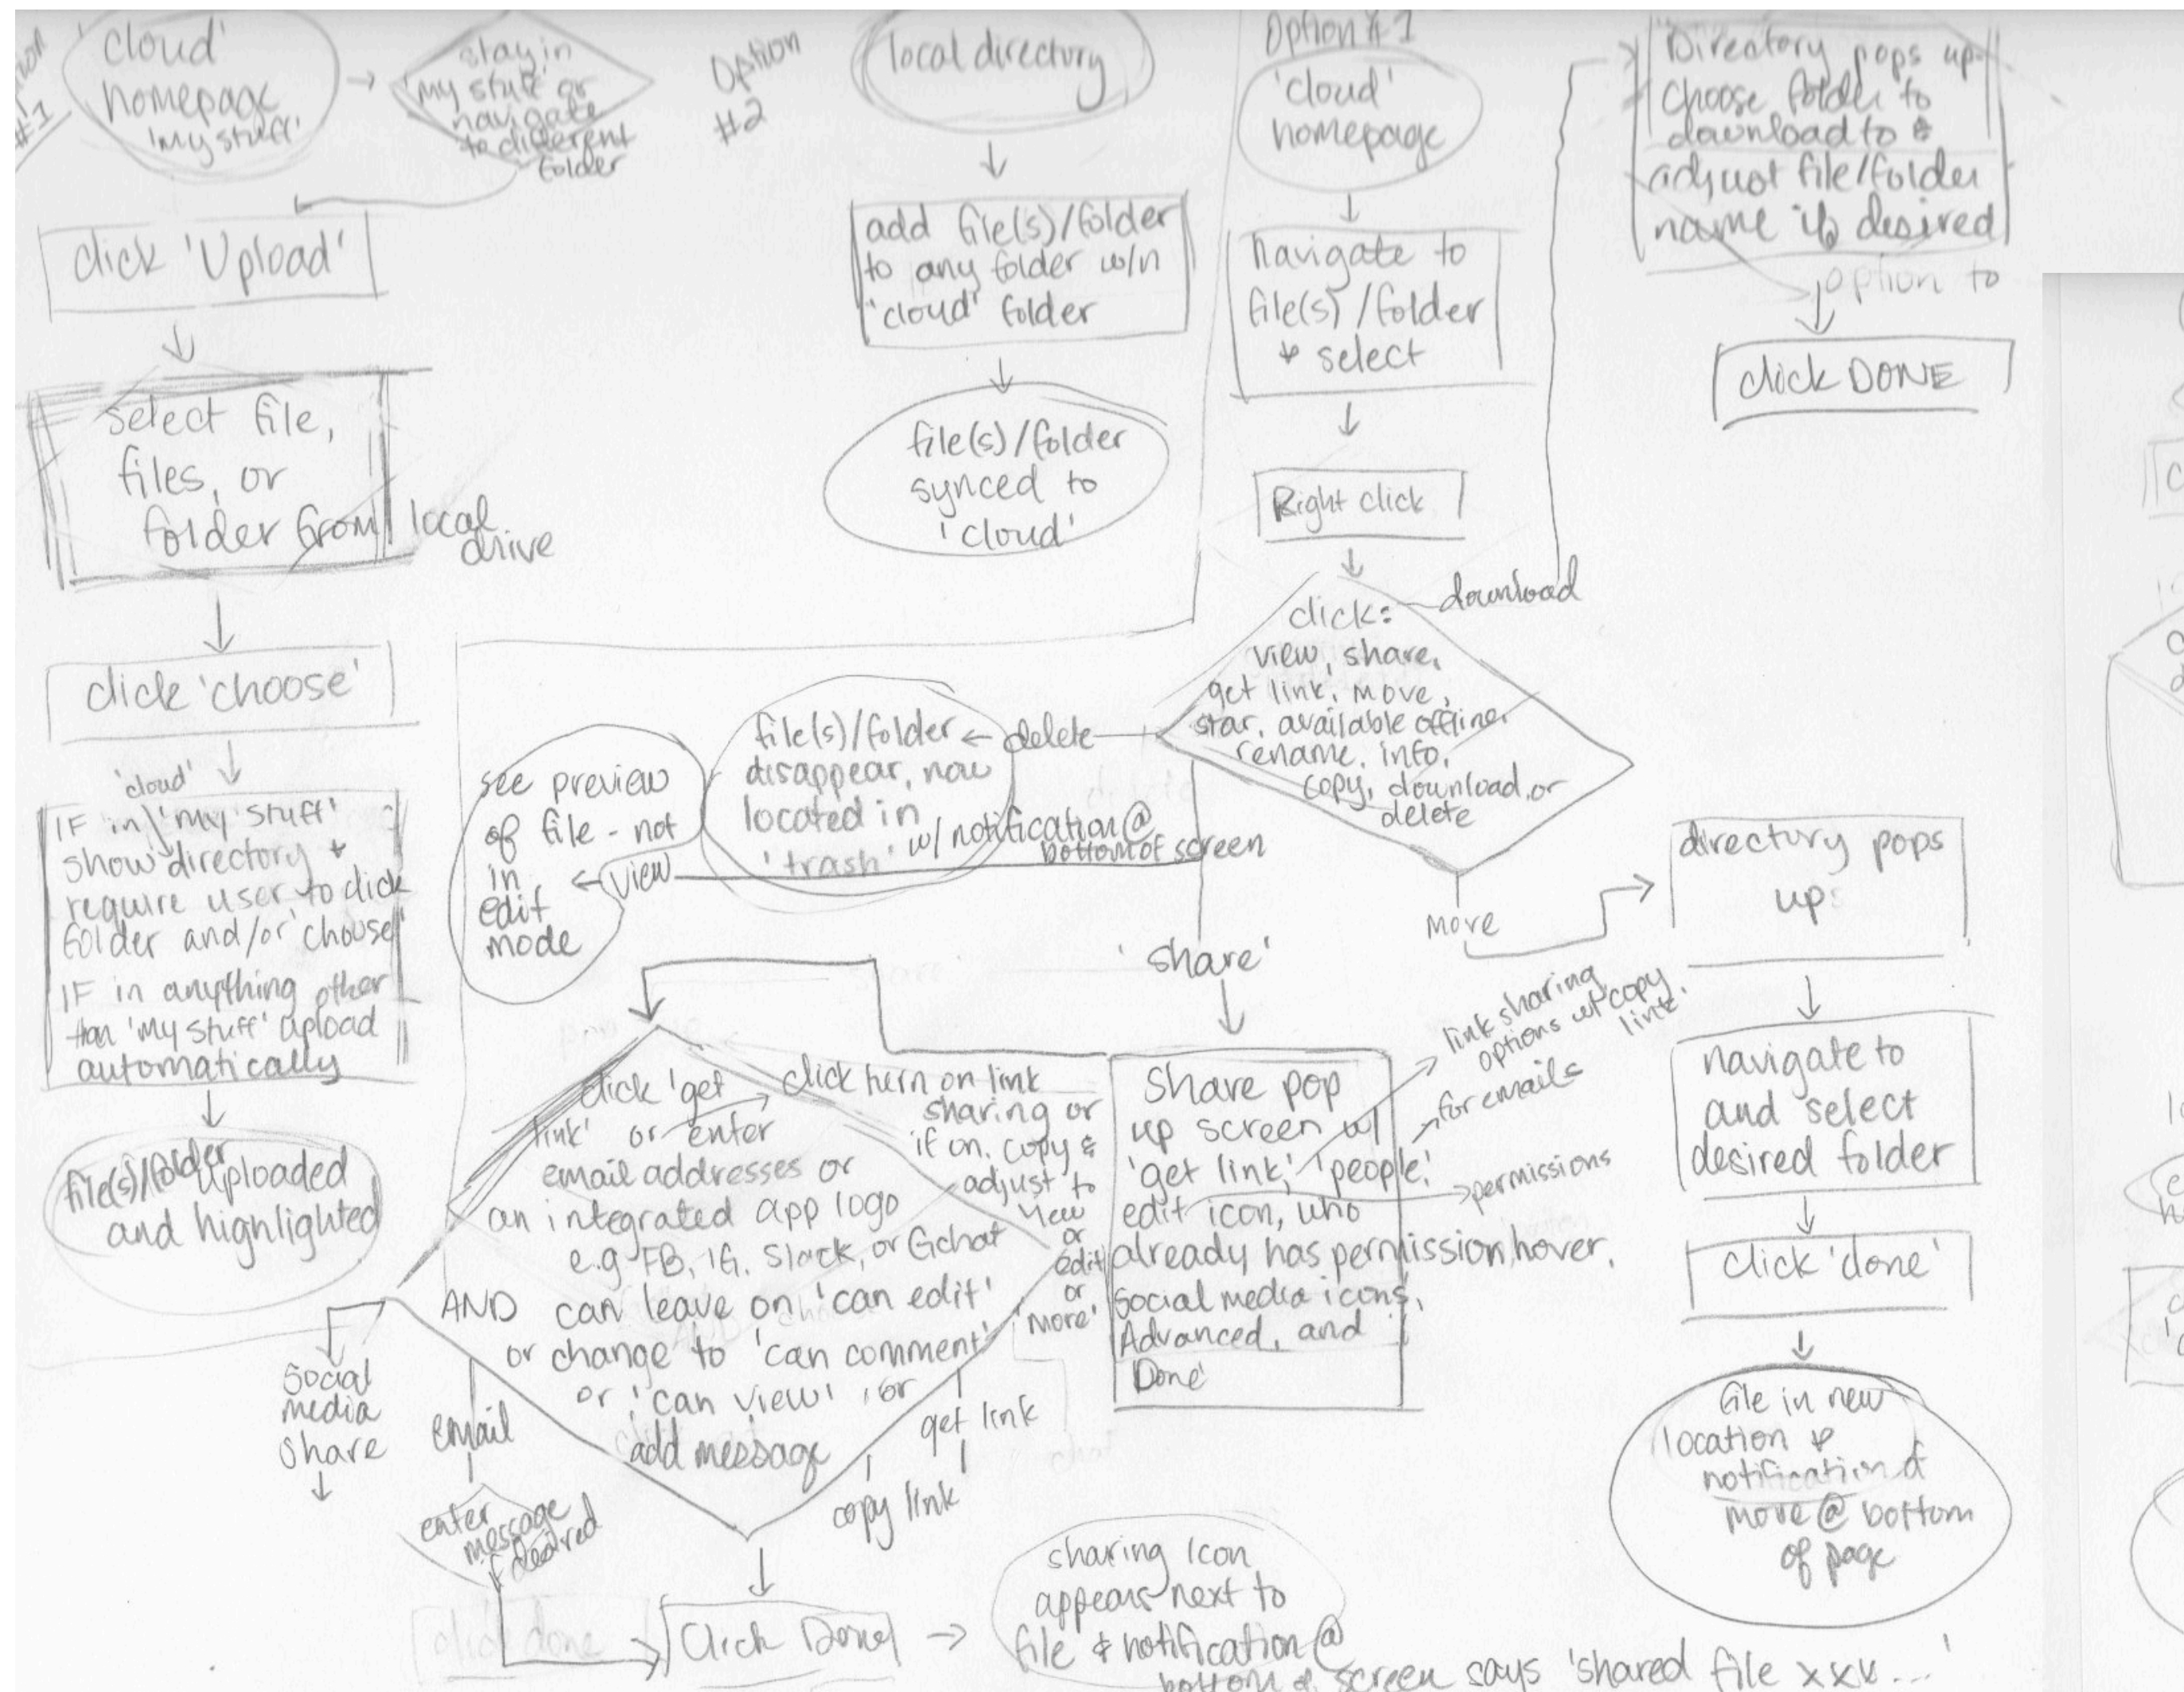 #1
'cloud'
homepage
'my stuff'
stay in
'my stuff' or
navigate
to different
folder
click 'Upload'
select file,
files, or
folder from local
drive
click 'choose'
'cloud'
IF in 'my stuff'
show directory &
require user to click
folder and/or 'choose'
IF in anything other
than 'my stuff' upload
automatically
file(s)/folder uploaded
and highlighted
Option
#2
local directory
add file(s)/folder
to any folder w/n
'cloud' folder
file(s)/folder
synced to
'cloud'
Option #1
'cloud'
homepage
navigate to
file(s)/folder
& select
Right click
click:
view, share,
get link, move,
star, available offline,
rename, info,
copy, download, or
delete
download
Directory pops up
choose folder to
download to &
adjust file/folder
name if desired
option to
click DONE
delete
file(s)/folder
disappear, now
located in
'trash' w/ notification @
bottom of screen
view
see preview
of file - not
in
edit
mode
move
directory pops
up
navigate to
and select
desired folder
click 'done'
file in new
location &
notification of
move @ bottom
of page
'share'
Share pop
up screen w/
'get link', 'people',
edit icon, who
already has permission, hover,
social media icons,
Advanced, and
Done
link sharing
options w/ copy
link.
for emails
permissions
click 'get
link' or enter
email addresses or
an integrated app logo
e.g FB, IG, Slack, or Gchat
AND can leave on 'can edit'
or change to 'can comment'
or 'can view', or
add message
click turn on link
sharing or
if on, copy &
adjust to
view
or
edit
or
'more'
social
media
share
email
enter
message
if desired
get link
copy link
click done
Click Done
sharing icon
appears next to
file & notification @
bottom of screen says 'shared file xxx...'